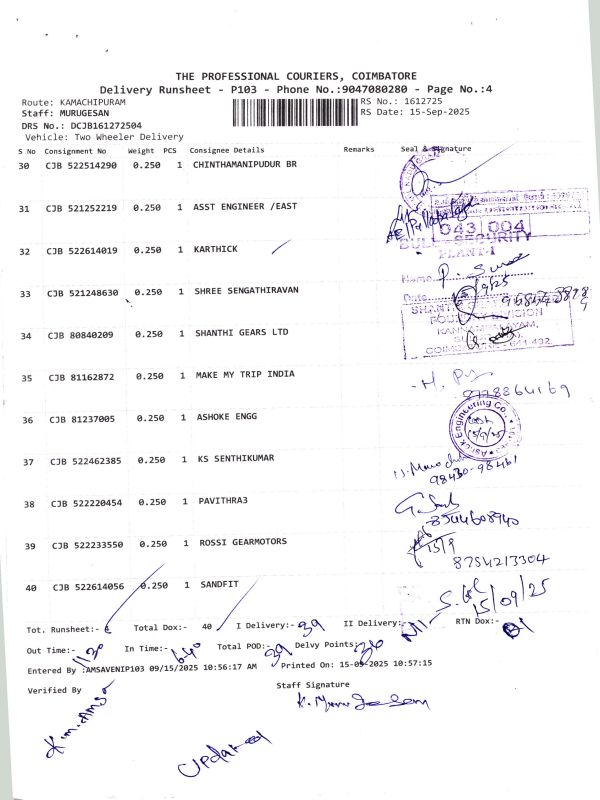 THE PROFESSIONAL COURIERS, COIMBATORE
Delivery Runsheet - P103 - Phone No.:9047080280 - Page No.:4
Route: KAMACHIPURAM RS No.: 1612725
Staff: MURUGESAN RS Date: 15-Sep-2025
DRS No.: DCJB161272504
Vehicle: Two Wheeler Delivery
S No Consignment No Weight PCS Consignee Details Remarks Seal & Signature
30 CJB 522514290 0.250 1 CHINTHAMANIPUDUR BR
31 CJB 521252219 0.250 1 ASST ENGINEER /EAST
043 004
32 CJB 522614019 0.250 1 KARTHICK
SECURITY
PLANT-1
Name
33 CJB 521248630 0.250 1 SHREE SENGATHIRAVAN
Date
34 CJB 80840209 0.250 1 SHANTHI GEARS LTD
641 432
35 CJB 81162872 0.250 1 MAKE MY TRIP INDIA
8778864169
36 CJB 81237005 0.250 1 ASHOKE ENGG
Engineering Co.
15/9/25
37 CJB 522462385 0.250 1 KS SENTHIKUMAR
98430-98461
38 CJB 522220454 0.250 1 PAVITHRA3
8344608940
39 CJB 522233550 0.250 1 ROSSI GEARMOTORS
15/9
8754213304
40 CJB 522614056 0.250 1 SANDFIT
15/09/25
Tot. Runsheet:- Total Dox:- 40 I Delivery:- 39 II Delivery:- Nil RTN Dox:- 01
Out Time:- In Time:- 640 Total POD:- 39 Delvy Points:- 36
Entered By :AMSAVENIP103 09/15/2025 10:56:17 AM Printed On: 15-09-2025 10:57:15
Verified By Staff Signature
Updated